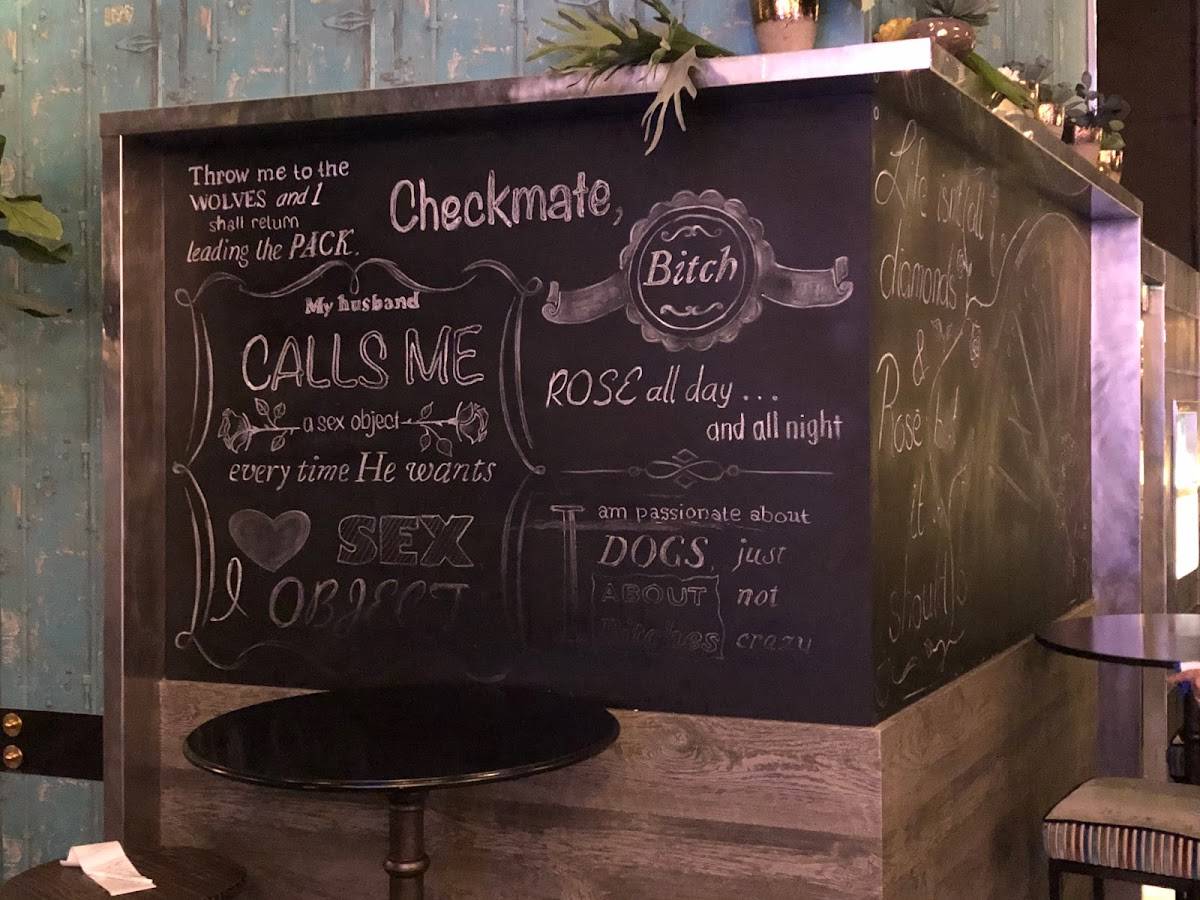 Throw me to the
WOLVES and I
shall return
leading the PACK.
Checkmate,
Bitch
My husband
CALLS ME
a sex object
every time He wants
SEX
I OBJECT
ROSE all day ...
and all night
I am passionate about
DOGS, just
ABOUT not
Bitches crazy
Life isn't all
diamonds
&
Rosé but
it
should